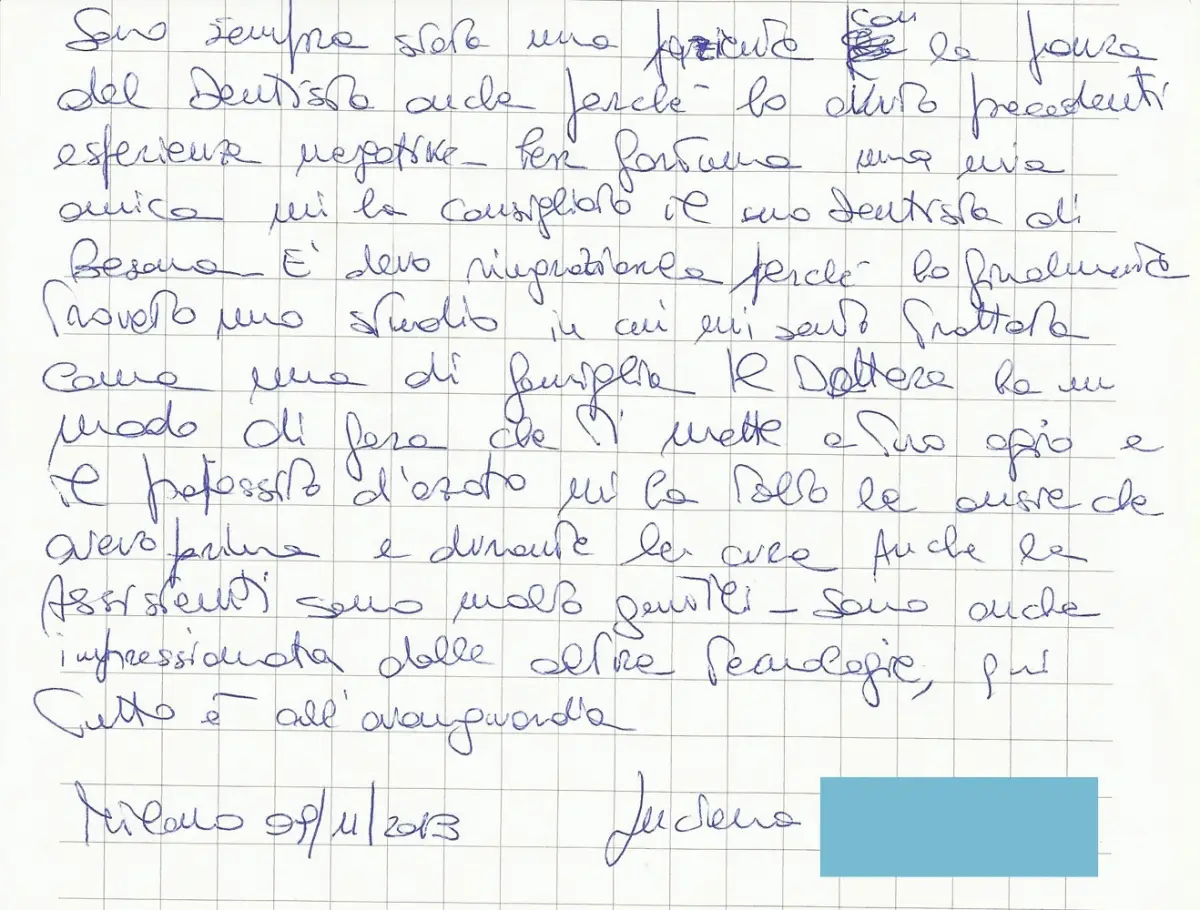 Sono sempre stata una paziente con la paura
del Dentista anche perché ho avuto precedenti
esperienze negative - Per fortuna una mia
amica mi ha consigliato il suo Dentista di
Besana - E' devo ringraziarla perché ho finalmente
trovato uno studio in cui mi sento trattata
come una di famiglia Il Dottore ha un
modo di fare che ti mette a tuo agio e
il protossido d'azoto mi ha tolto le ansie che
avevo prima e durante le cure Anche le
Assistenti sono molto gentili - Sono anche
impressionata dalle altre tecnologie, qui
Tutto è all'avanguardia
Milano /11/2013 Luciana